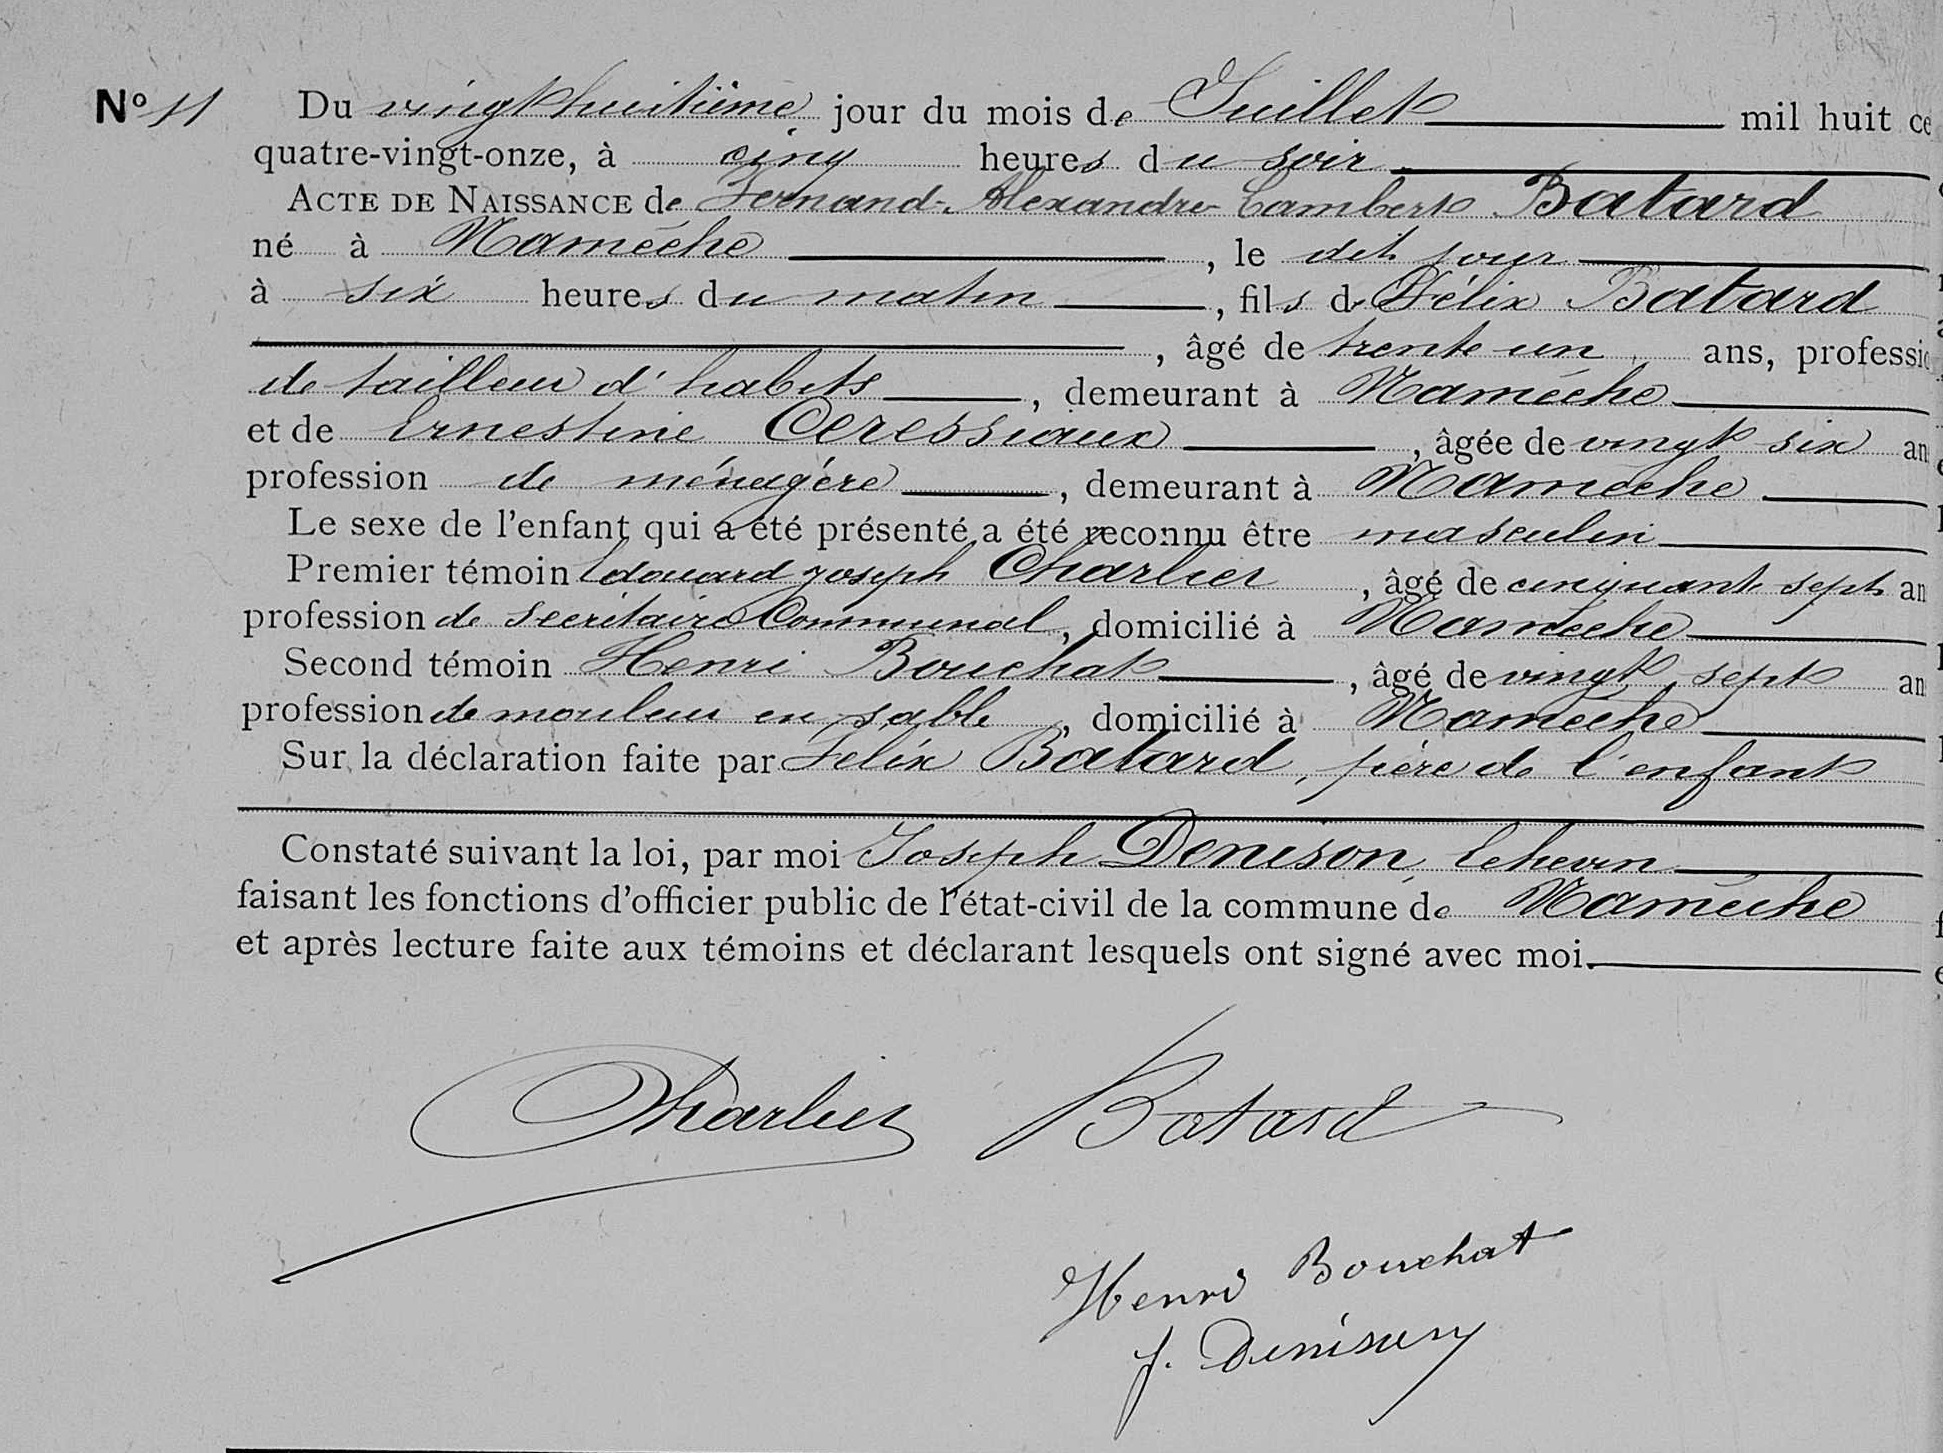 N° 11 Du vingt huitième jour du mois de Juillet mil huit ce
quatre-vingt-onze, à cinq heures du soir
ACTE DE NAISSANCE de Fernand-Alexandre Lambert Batard
né à Namêche, le dit jour
à six heures du matin, fils de Félix Batard
, âgé de trente un ans, professio
de tailleur d'habits, demeurant à Namêche
et de Ernestine Ceressiaux, âgée de vingt six an
profession de ménagère, demeurant à Namêche
Le sexe de l'enfant qui a été présenté a été reconnu être masculin
Premier témoin Edouard Joseph Charlier, âgé de cinquante sept an
profession de secrétaire Communal, domicilié à Namêche
Second témoin Henri Bouchat, âgé de vingt sept an
profession de mouleur en sable, domicilié à Namêche
Sur la déclaration faite par Félix Batard, père de l'enfant
Constaté suivant la loi, par moi Joseph Denison, Echevin
faisant les fonctions d'officier public de l'état-civil de la commune de Namêche
et après lecture faite aux témoins et déclarant lesquels ont signé avec moi.
Charlier Batard
Henri Bouchat
J. Denison